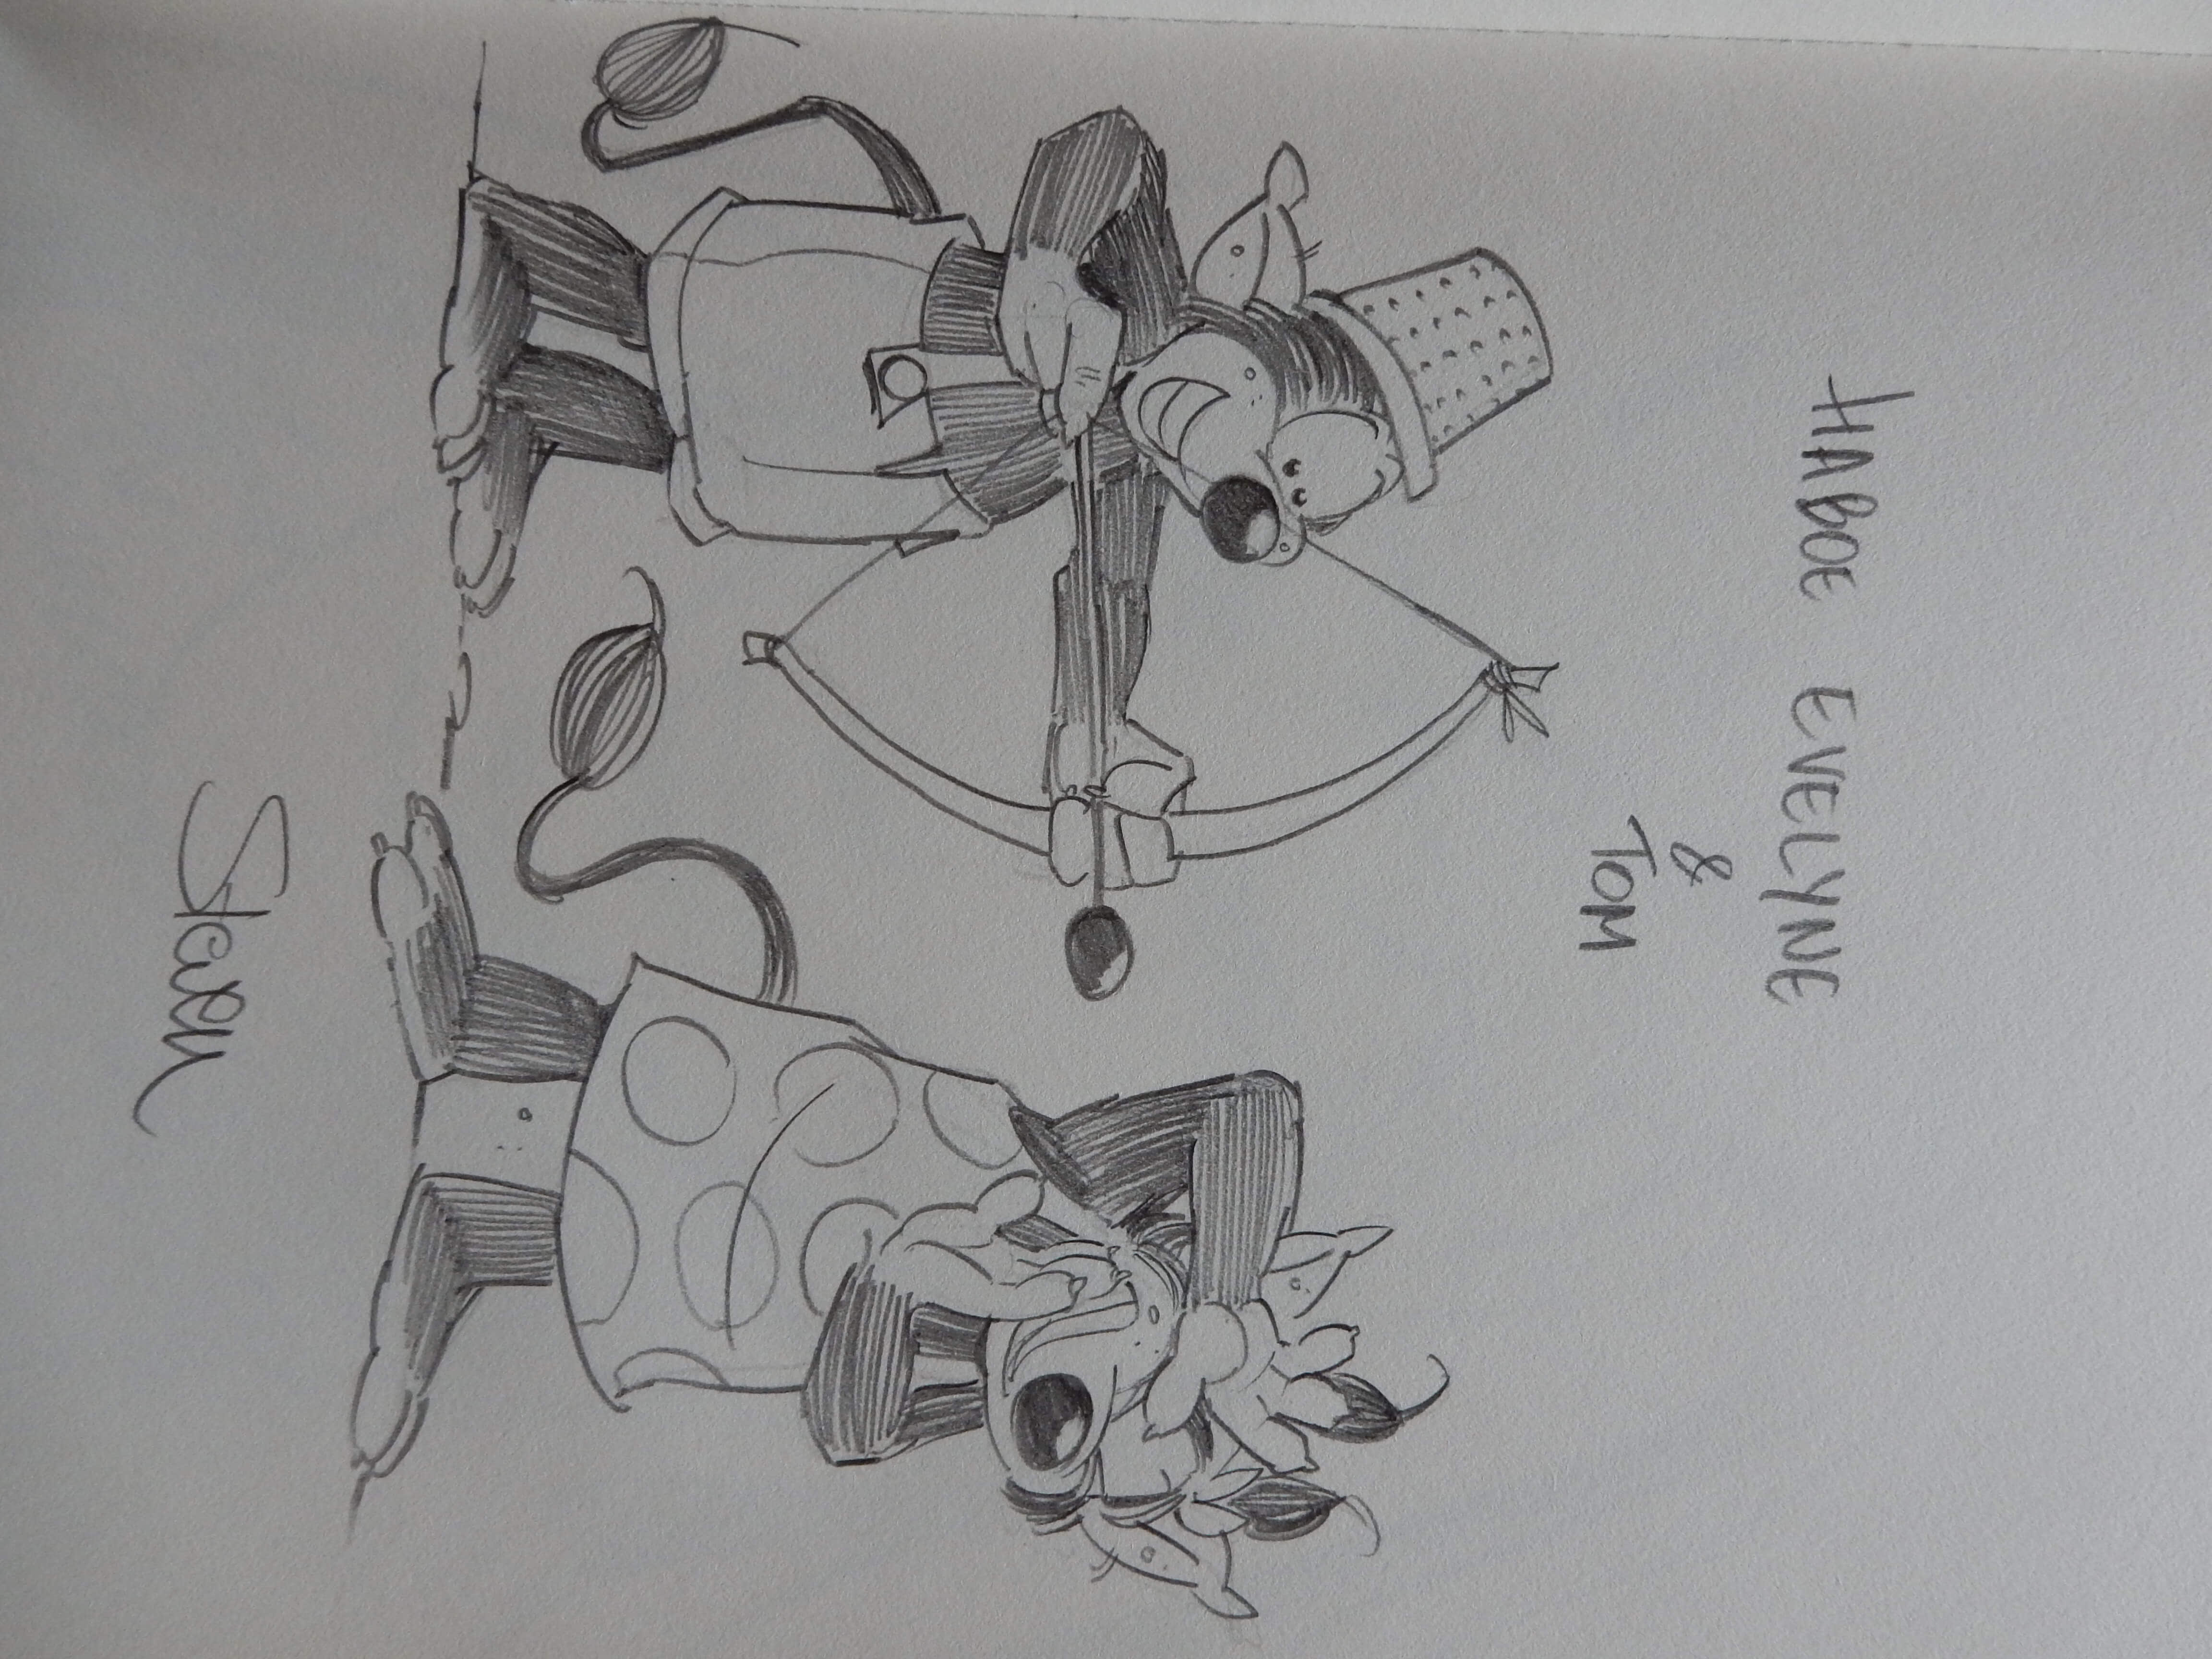 HABOE EVELYNE
&
TOM
Steven